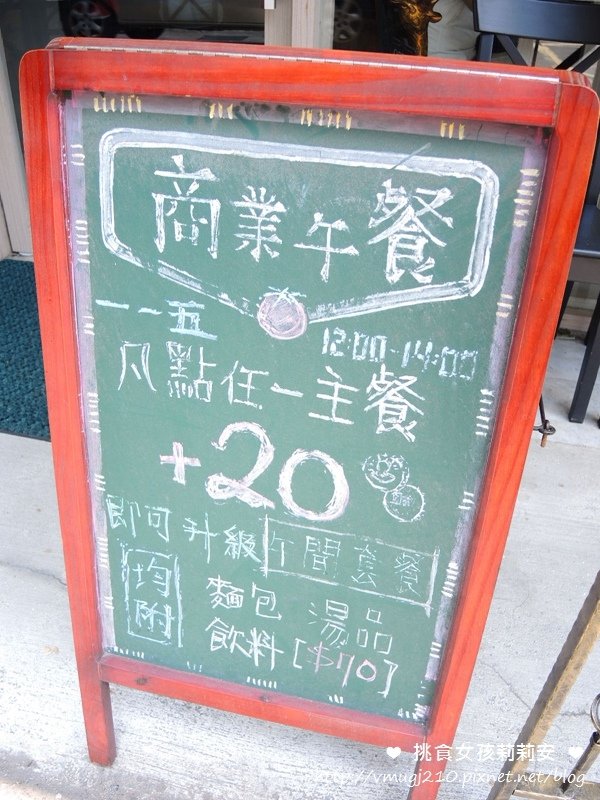 商業午餐
一~五 12:00~14:00
凡點任一主餐
+20
即可升級午間套餐
均附 麵包 湯品
飲料[$70]
♥ 挑食女孩莉莉安 ♥
http://vmugj210.pixnet.net/blog